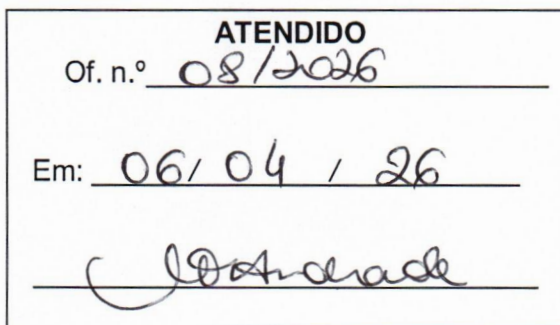 ATENDIDO
Of. n.º 08/2026
Em: 06/ 04 / 26
Andrade